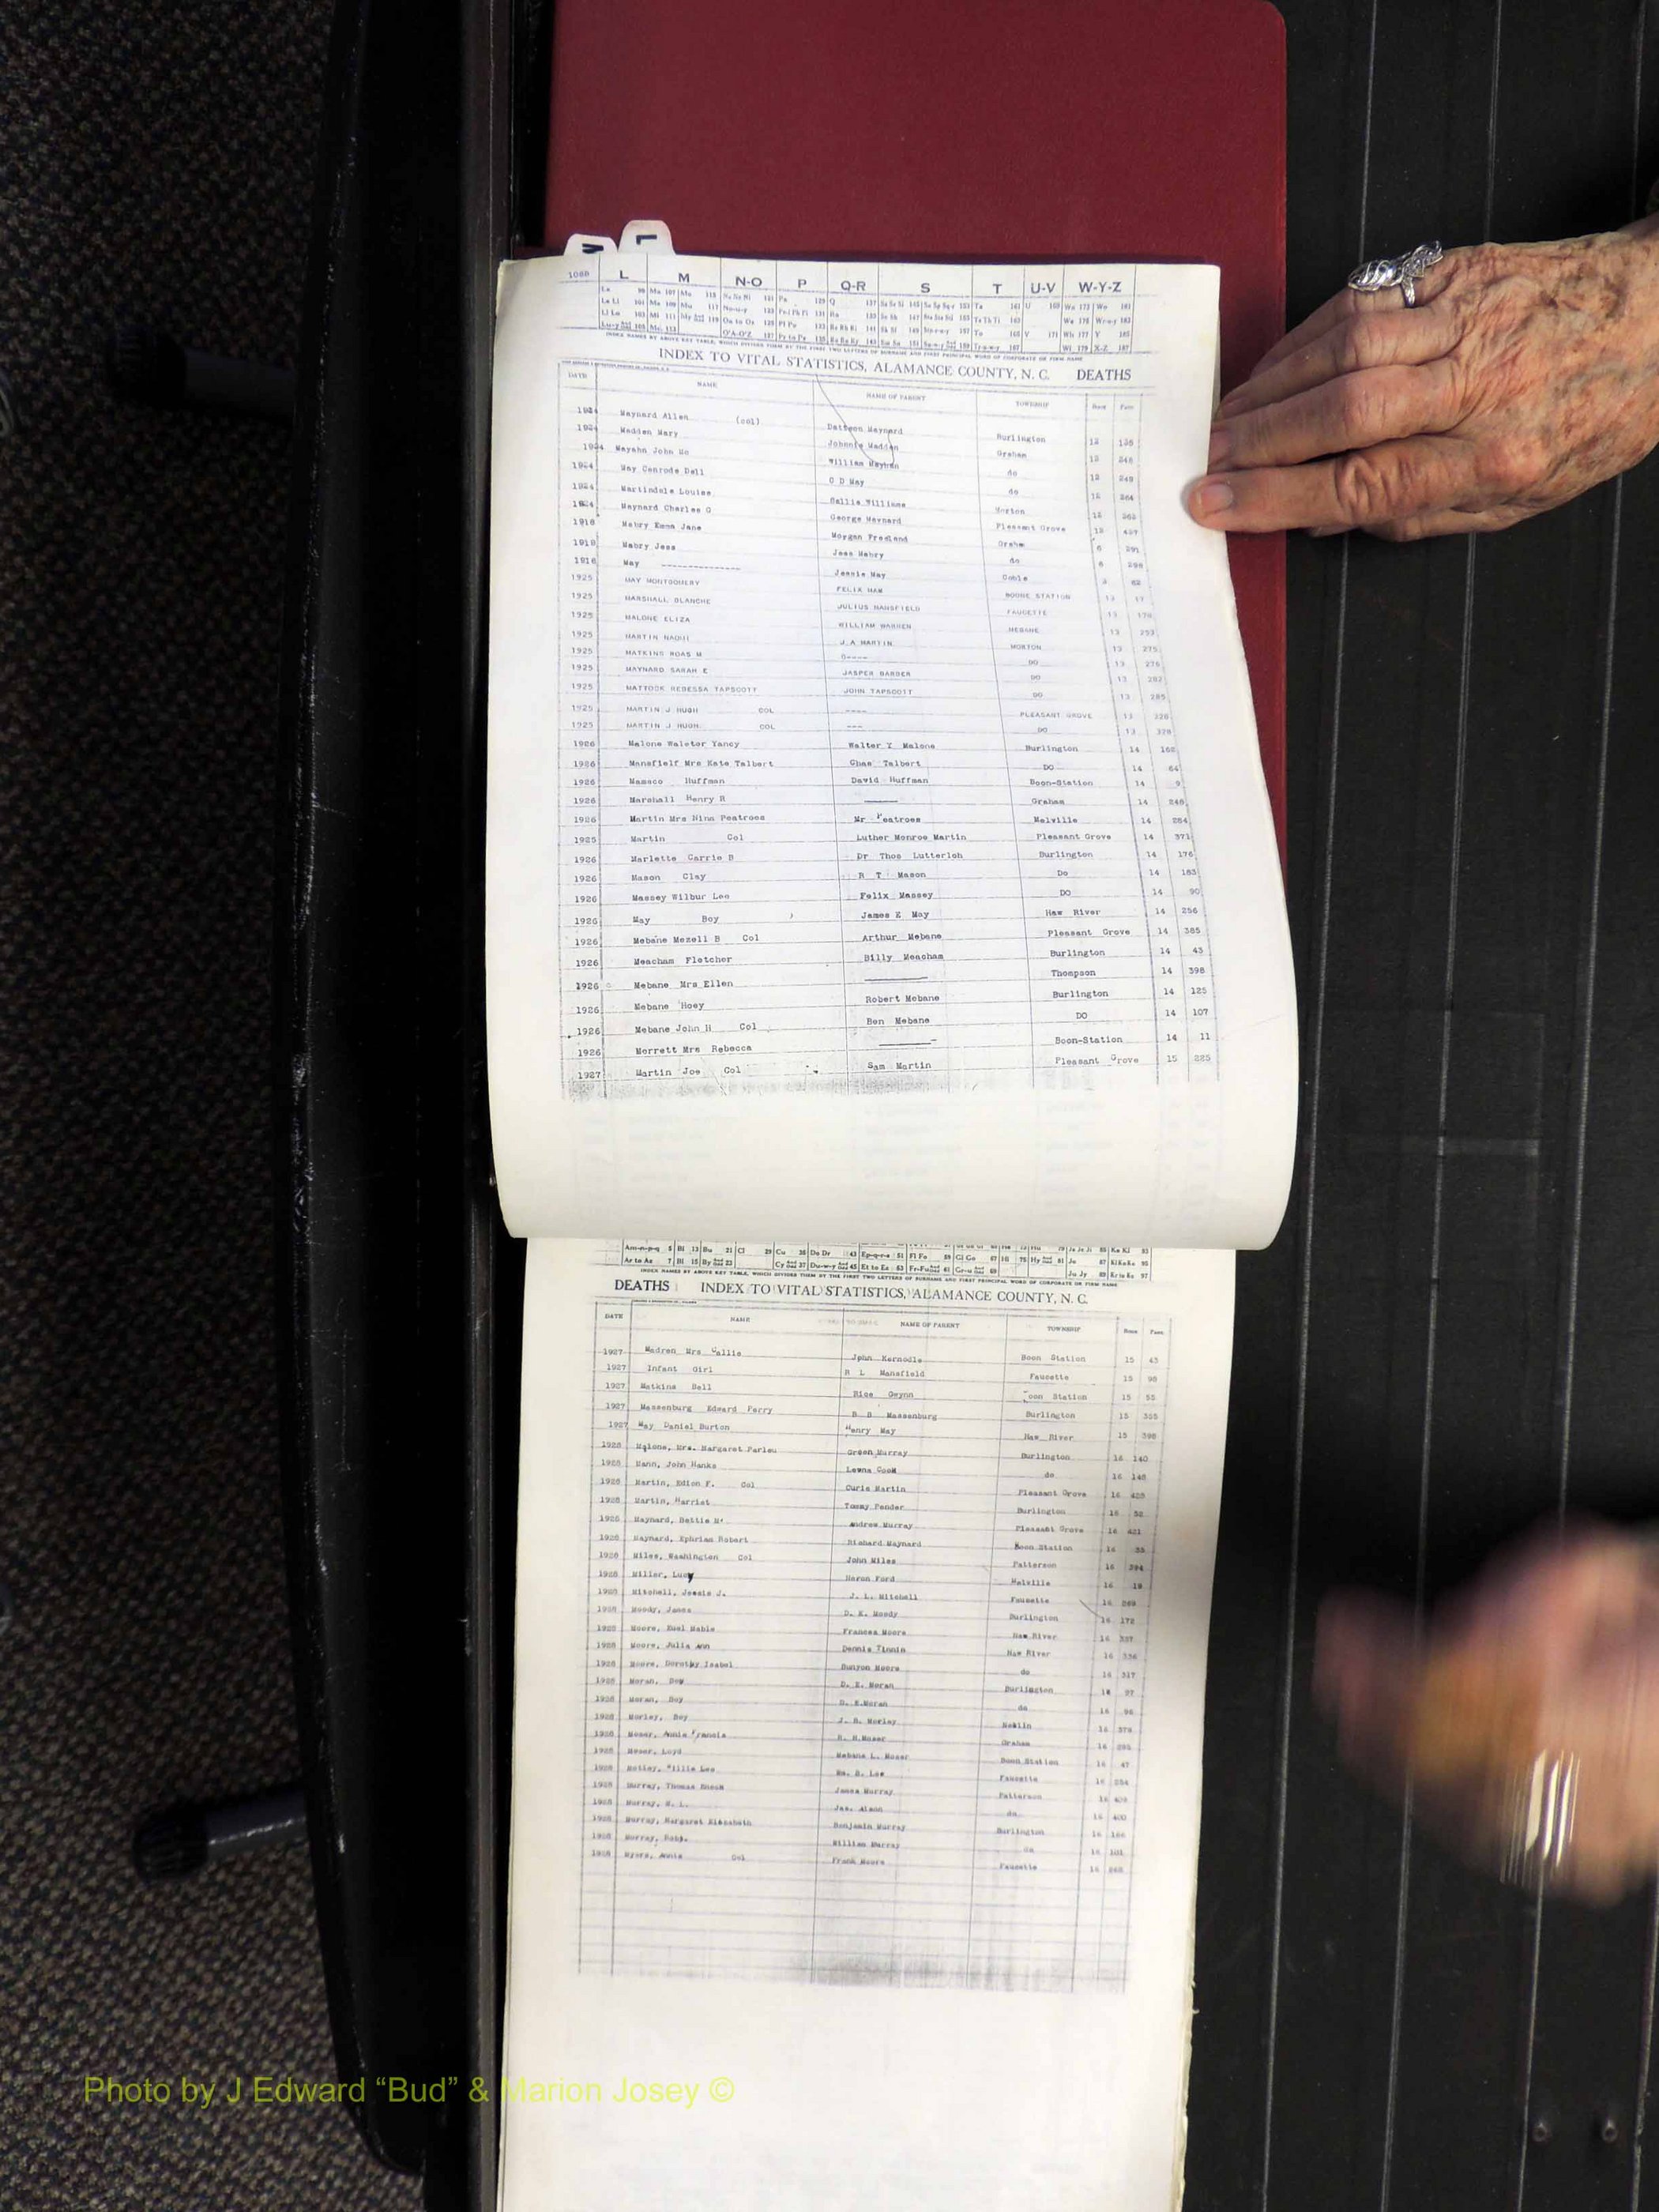 M L
108B L M N-O P Q-R S T U-V W-Y-Z
INDEX NAMES BY ABOVE KEY TABLE, WHICH DIVIDES THEM BY THE FIRST TWO LETTERS OF SURNAME AND FIRST PRINCIPAL WORD OF CORPORATE OR FIRM NAME
INDEX TO VITAL STATISTICS, ALAMANCE COUNTY, N. C. DEATHS
DATE NAME NAME OF PARENT TOWNSHIP Book Page
1924 Maynard Allen (col) Maynard Burlington 12
1924 Madden Mary Johnnie Madden Graham 12
1924 Mayahn John Mc William do 12
1924 May Cenrode Dell C D May do 12
1924 Martindale Louise Sallie Williams Morton 12
1924 Maynard Charles G George Maynard Pleasant Grove 12
1918 Mabry Emma Jane Morgan Freeland Graham 6 291
1918 Mabry Jess Jess Mabry do 6
1916 May -------------- Jennie May Coble 3 62
1925 MAY MONTGOMERY FELIX MAM BOONE STATION 13 17
1925 MARSHALL BLANCHE JULIUS MANSFIELD FAUCETTE 13
1925 MALONE ELIZA WILLIAM WARREN MEBANE 13
1925 MARTIN NAOMI J.A MARTIN MORTON 13 275
1925 MATKINS ROAS M O---- DO 13 276
1925 MAYNARD SARAH E JASPER BARBER DO 13 282
1925 MATTOCK REBESSA TAPSCOTT JOHN TAPSCOTT DO 13 285
1925 MARTIN J HUGH COL ---- PLEASANT GROVE 13 328
1925 MARTIN J HUGH COL --- DO 13 328
1926 Malone Waletor Yancy Walter Y Malone Burlington 14 168
1926 Mansfielf Mrs Kate Talbert Chas Talbert DO 14 64
1926 Mamaco Huffman David Huffman Boon-Station 14 9
1926 Marshall Henry R ——— Graham 14 248
1926 Martin Mrs Nina Peatross Mr Peatross Melville 14 284
1925 Martin Col Luther Monroe Martin Pleasant Grove 14 371
1926 Marlette Carrie B Dr Thos Lutterloh Burlington 14 176
1926 Mason Clay R T Mason Do 14 183
1926 Massey Wilbur Lee Felix Massey DO 14 90
1926 May Boy James E May Haw River 14 256
1926 Mebane Mezell B Col Arthur Mebane Pleasant Grove 14 385
1926 Meacham Fletcher Billy Meacham Burlington 14 43
1926 Mebane Mrs Ellen ——— Thompson 14 398
1926 Mebane Hoey Robert Mebane Burlington 14 125
1926 Mebane John H Col Ben Mebane DO 14 107
1926 Merrett Mrs Rebecca ——— Boon-Station 14 11
1927 Martin Joe Col Sam Martin Pleasant Grove 15 225
INDEX NAMES BY ABOVE KEY TABLE, WHICH DIVIDES THEM BY THE FIRST TWO LETTERS OF SURNAME AND FIRST PRINCIPAL WORD OF CORPORATE OR FIRM NAME
DEATHS INDEX TO VITAL STATISTICS, ALAMANCE COUNTY, N. C.
DATE NAME NAME OF PARENT TOWNSHIP Book Page
1927 Madren Mrs Callie John Kernodle Boon Station 15 43
1927 Infant Girl R L Mansfield Faucette 15 98
1927 Matkins Bell Rice Gwynn oon Station 15 55
1927 Massenburg Edward Perry B B Massenburg Burlington 15 355
1927 May Daniel Burton Henry May Haw River 15 398
1928 Malone, Mrs. Margaret Parlou Green Murray Burlington 16 140
1928 Mann, John Hanks Lewna Cook do 16 148
1928 Martin, Edion F. Col Curie Martin Pleasant Grove 16
1928 Martin, Harriet Tommy Pender Burlington 16 52
1928 Maynard, Bettie M Andrew Murray Pleasant Grove 16 421
1928 Maynard, Ephriam Robert Richard Maynard Boon Station 16 35
1928 Miles, Washington Col John Miles Patterson 16 394
1928 Miller, Lucy Heron Ford Melville 16 18
1928 Mitchell, Jessie J. J. L. Mitchell Faucette 16 269
1928 Moody, James D. K. Moody Burlington 16 172
1928 Moore, Euel Mable Frances Moore Haw River 16 337
1928 Moore, Julia Ann Dennis Tinnin Haw River 16 336
1928 Moore, Dorothy Isabel Bunyon Moore do 16 317
1928 Moran, Boy D. E. Moran Burlington 97
1928 Moran, Boy D. E.Moran do 16 96
1928 Morley, Boy J. B. Morley 16 379
1928 Moser, Annie Francis R. H.Moser Graham 16
1928 Moser, Loyd Mebane L. Moser Boon Station 16 47
1928 Motley, Willie Lee Wm. B. Lee Faucette 16 254
1928 Murray, Thomas Enoch James Murray Patterson 16 409
1928 Murray, M. L. Jas. Alson do 16 400
1928 Murray, Margaret Elizabeth Benjamin Murray Burlington 16 166
1928 Murray, Robt. William Murray do 16 101
1928 Myers, Annie Col Frank Moore Faucette 16
Photo by J Edward “Bud” & Marion Josey ©